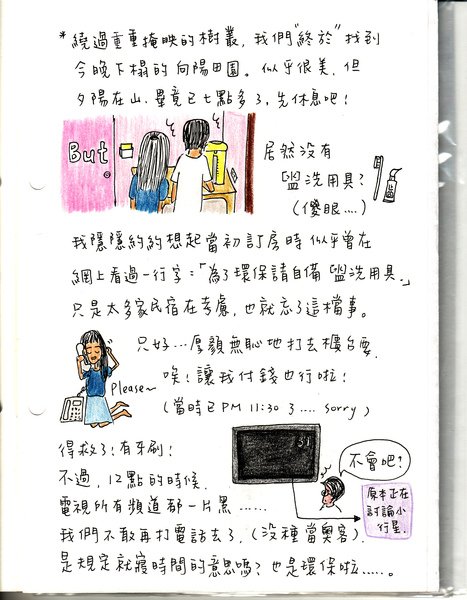 *繞過重重掩映的樹叢,我們"終於"找到
今晚下榻的向陽田園。似乎很美,但
夕陽在山,畢竟已七點多了,先休息吧!
But
居然沒有
盥洗用具?
(傻眼....)
我隱隱約約想起當初訂房時似乎曾在
網上看過一行字:「為了環保請自備盥洗用具。」
只是太多家民宿在考慮,也就忘了這檔事。
只好...厚顏無恥地打去櫃台要.
唉!讓我付錢也行啦!
Please~
(當時已PM 11:30了.... sorry)
得救了!有牙刷!
不過,12點的時候,
電視所有頻道都一片黑......
51
不會吧!
原本正在
討論小
行星.
我們不敢再打電話去了,(沒種當奧客).
是規定就寢時間的意思嗎?也是環保啦.....。